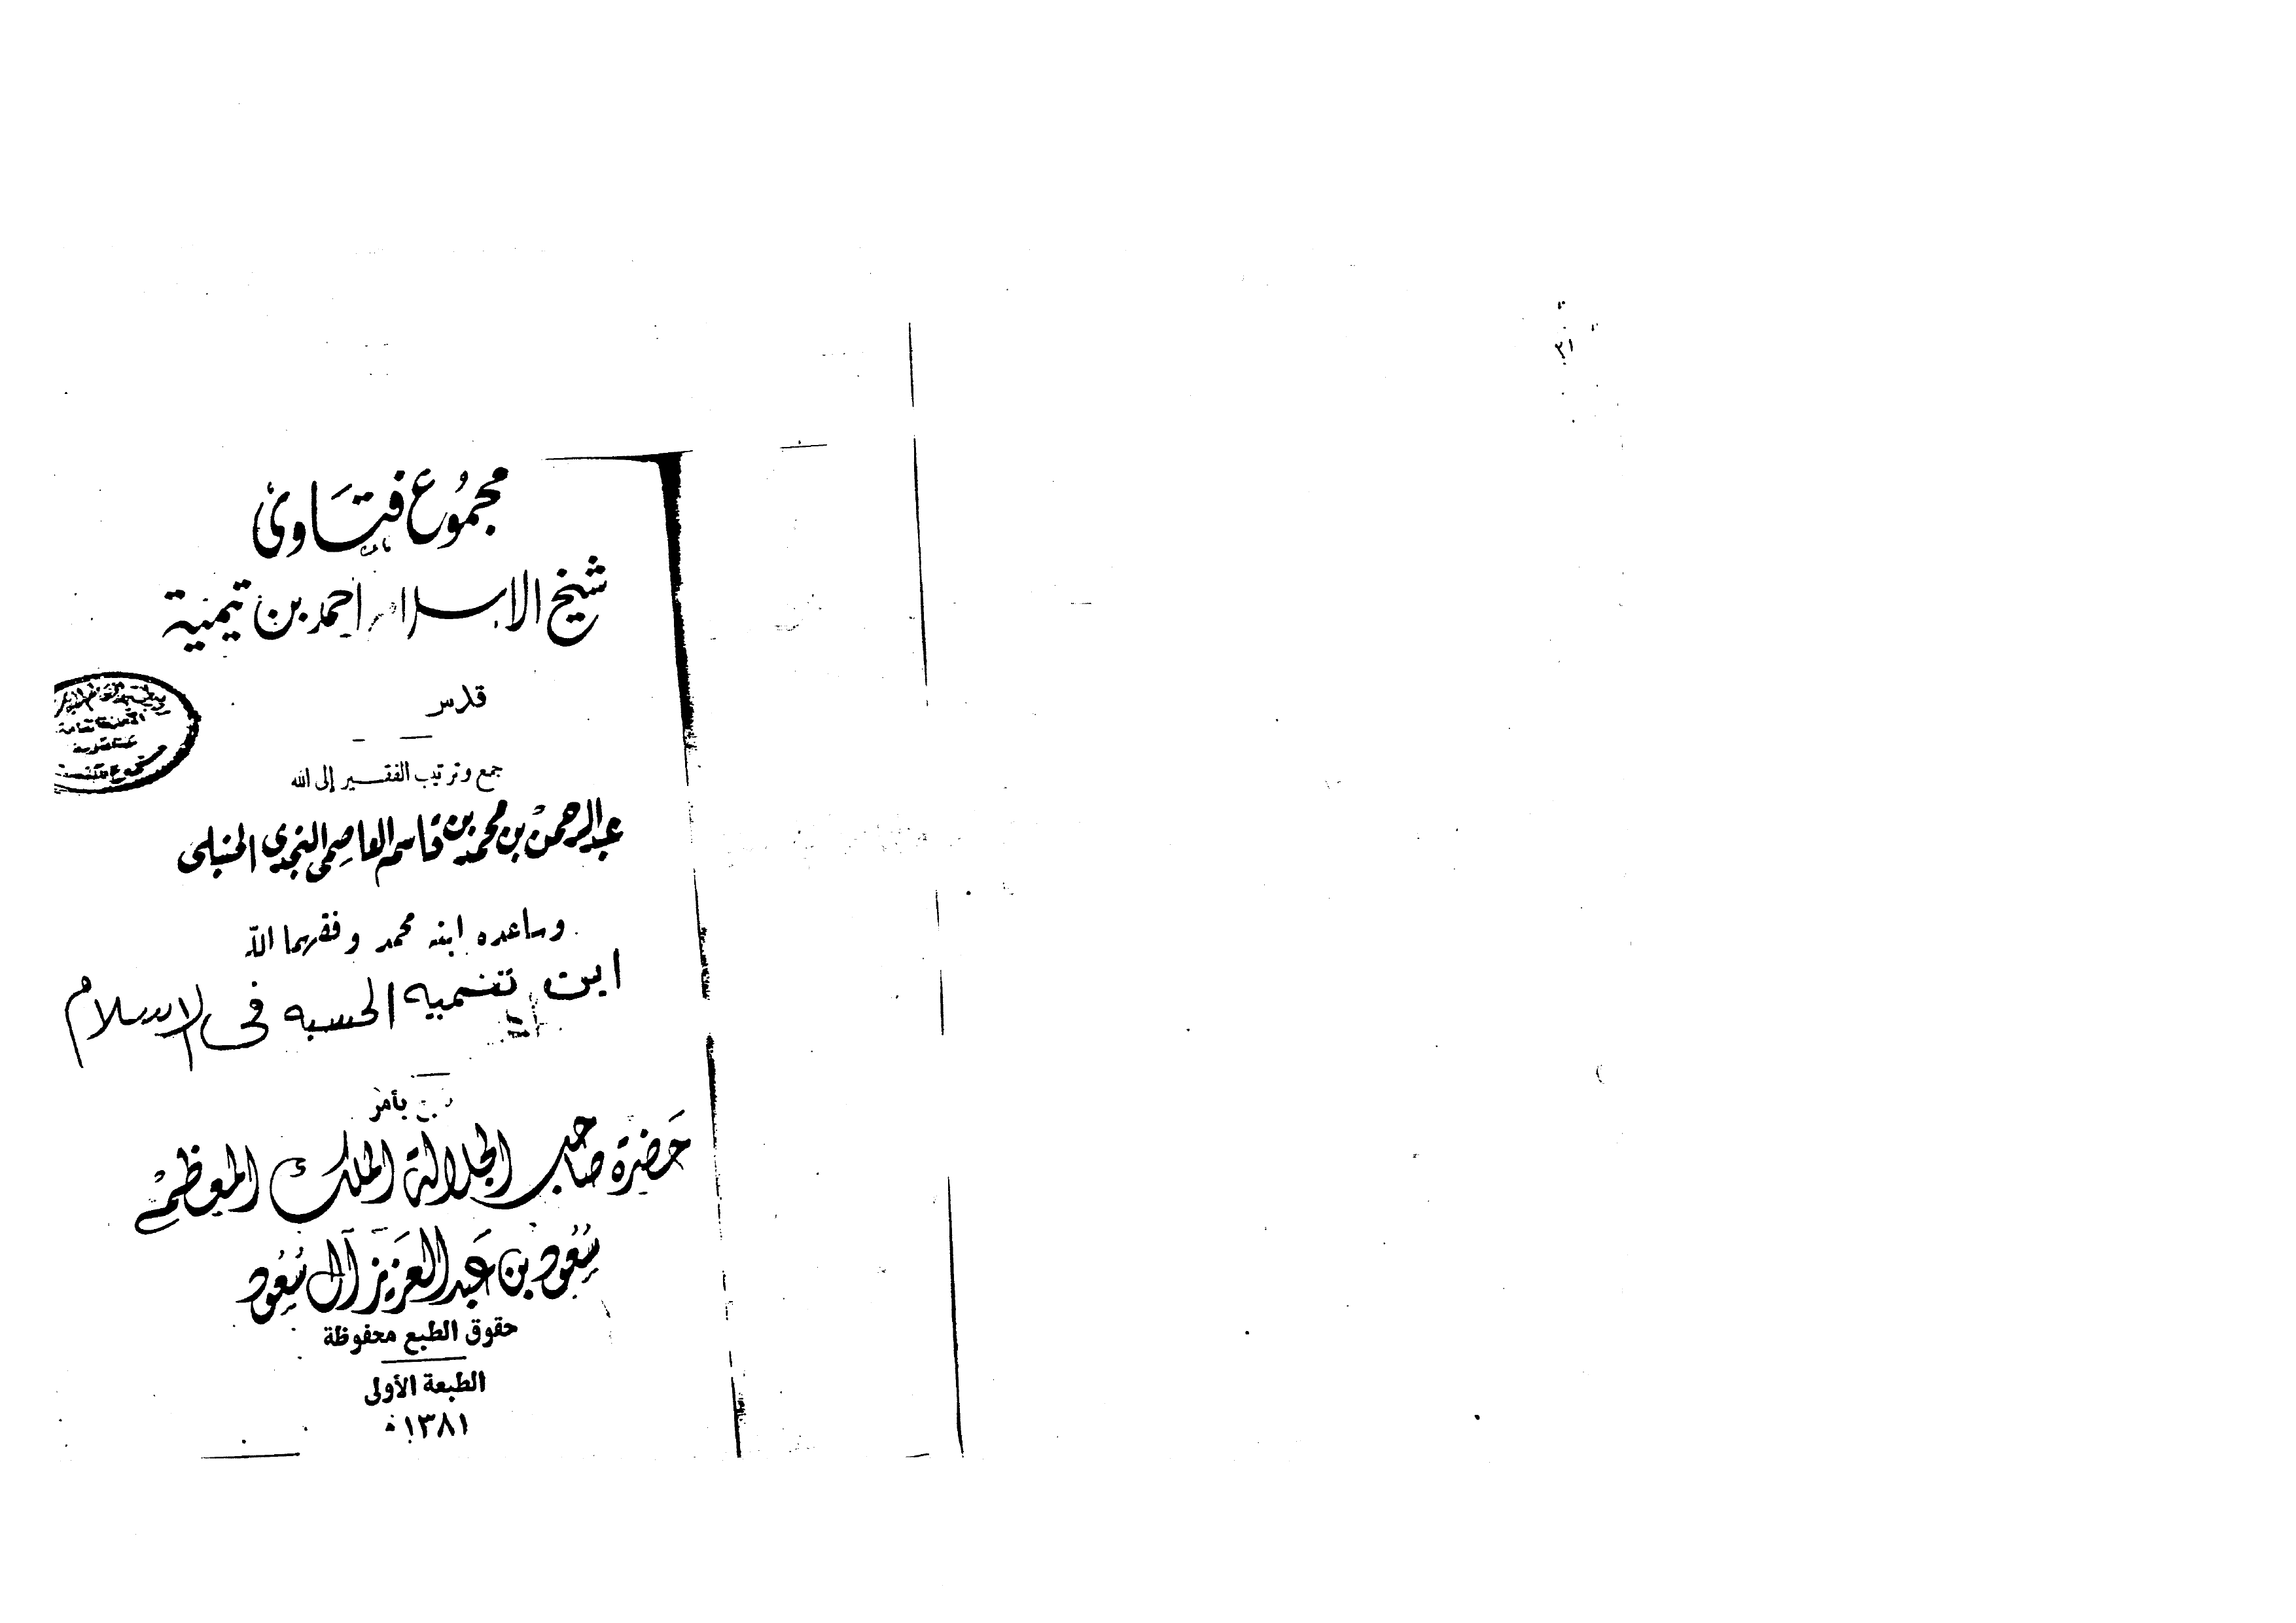 مجموع فتاوى
شيخ الاسلام احمد بن تيمية
قدس
جمع وترتيب الفقير إلى الله
عبد الرحمن بن محمد بن قاسم العاصمي النجدي الحنبلي
وساعده ابنه محمد وفقهما الله
ابن تيميه الحسبه فى الاسلام
بأمر
حضرة صاحب الجلالة الملك المعظم
سعود بن عبد العزيز آل سعود
حقوق الطبع محفوظة
الطبعة الأولى
١٣٨١ هـ